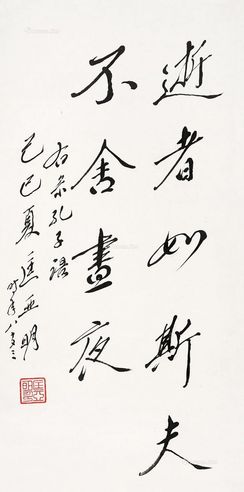 逝者如斯夫
不舍晝夜
右录孔子語
己巳夏匡亚明
时年八十三